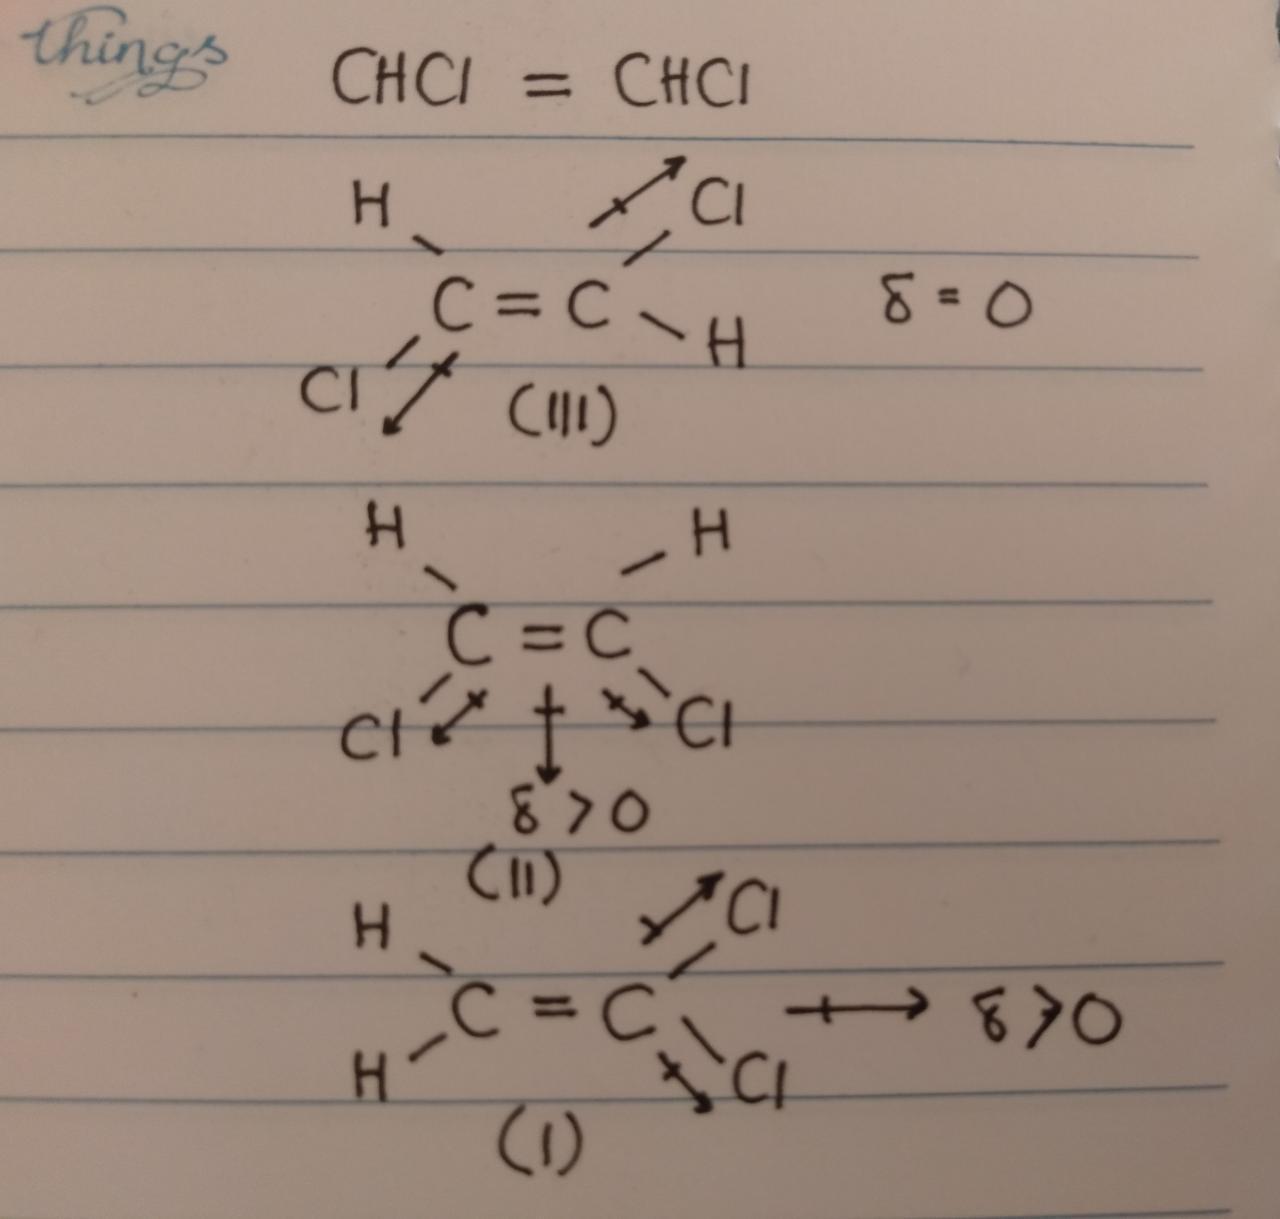 things
CHCl = CHCl
H Cl
C = C δ = 0
Cl H
(III)
H H
C = C
Cl Cl
δ > 0
(II)
H Cl
C = C δ > 0
H Cl
(I)